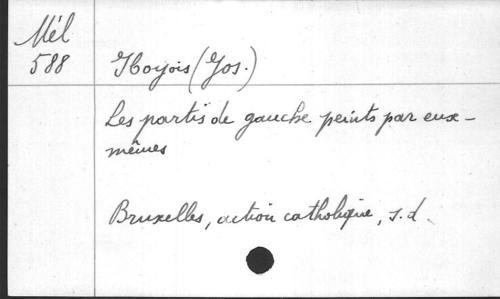 Mél
588
Hoyois (Jos.)
Les partis de gauche peints par eux-
mêmes
Bruxelles, action catholique, s.d.